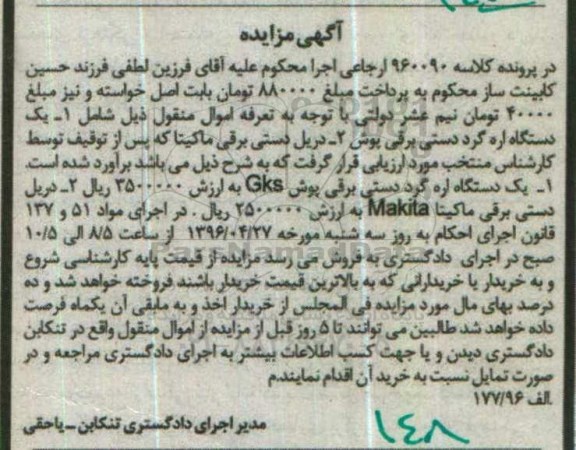 آگهی مزایده
در پرونده کلاسه ۹۶۰۰۹۰ ارجاعی اجرا محکوم علیه آقای فرزین لطفی فرزند حسین
کابینت ساز محکوم به پرداخت مبلغ ۸۸۰۰۰۰ تومان بابت اصل خواسته و نیز مبلغ
۴۰۰۰۰ تومان نیم عشر دولتی با توجه به تعرفه اموال منقول ذیل شامل ۱ـ یک
دستگاه اره گرد دستی برقی پوش ۲ـ دریل دستی برقی ماکیتا که پس از توقیف توسط
کارشناس منتخب مورد ارزیابی قرار گرفت که به شرح ذیل می باشد برآورد شده است.
۱ـ یک دستگاه اره گرد دستی برقی پوش Gks به ارزش ۳۵۰۰۰۰۰ ریال ۲ـ دریل
دستی برقی ماکیتا Makita به ارزش ۲۵۰۰۰۰۰ ریال . در اجرای مواد ۵۱ و ۱۳۷
قانون اجرای احکام به روز سه شنبه مورخه ۱۳۹۶/۰۴/۲۷ از ساعت ۸/۵ الی ۱۰/۵
صبح در اجرای دادگستری به فروش می رسد مزایده از قیمت پایه کارشناسی شروع
و به خریدار یا خریدارانی که به بالاترین قیمت خریدار باشند فروخته خواهد شد و ده
درصد بهای مال مورد مزایده فی المجلس از خریدار اخذ و به مابقی آن یکماه فرصت
داده خواهد شد طالبین می توانند تا ۵ روز قبل از مزایده از اموال منقول واقع در تنکابن
دادگستری دیدن و یا جهت کسب اطلاعات بیشتر به اجرای دادگستری مراجعه و در
صورت تمایل نسبت به خرید آن اقدام نمایند.م
.الف ۱۷۷/۹۶
مدیر اجرای دادگستری تنکابن ـ یاحقی
۱۴۸